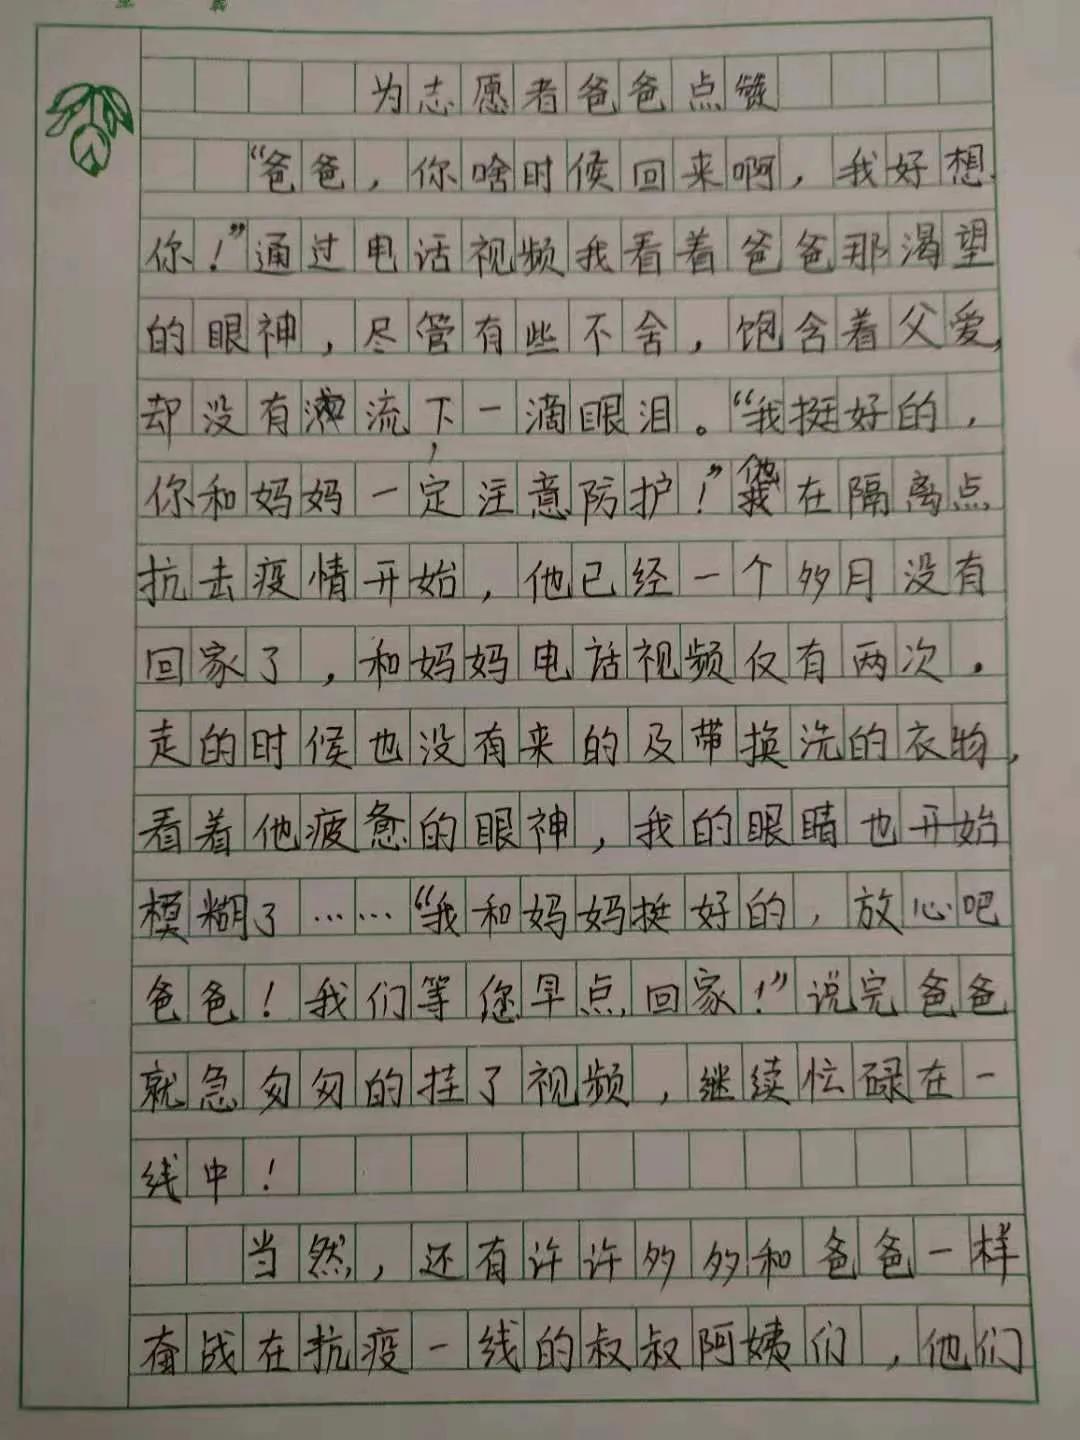 为志愿者爸爸点赞
“爸爸，你啥时候回来啊，我好想
你！”通过电话视频我看着爸爸那渴望
的眼神，尽管有些不舍，饱含着父爱，
却没有流下一滴眼泪。“我挺好的，
你和妈妈一定注意防护！”他在隔离点
抗击疫情开始，他已经一个多月没有
回家了，和妈妈电话视频仅有两次，
走的时候也没有来的及带换洗的衣物，
看着他疲惫的眼神，我的眼睛也开始
模糊了……“我和妈妈挺好的，放心吧
爸爸！我们等您早点回家！”说完爸爸
就急匆匆的挂了视频，继续忙碌在一
线中！
当然，还有许许多多和爸爸一样
奋战在抗疫一线的叔叔阿姨们，他们